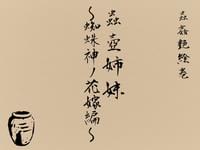 蟲姦艶絵巻
蟲壺姉妹
〜蜘蛛神ノ花嫁編〜